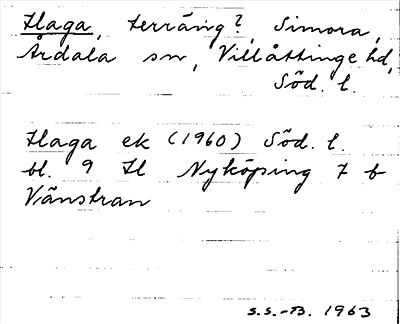 Haga, terräng?, Simora,
Årdala sn, Villåttinge hd,
Söd. l.
Haga ek (1960) Söd. l.
bl. 9 H Nyköping 7 b
Vänstran
S.S.-B. 1963